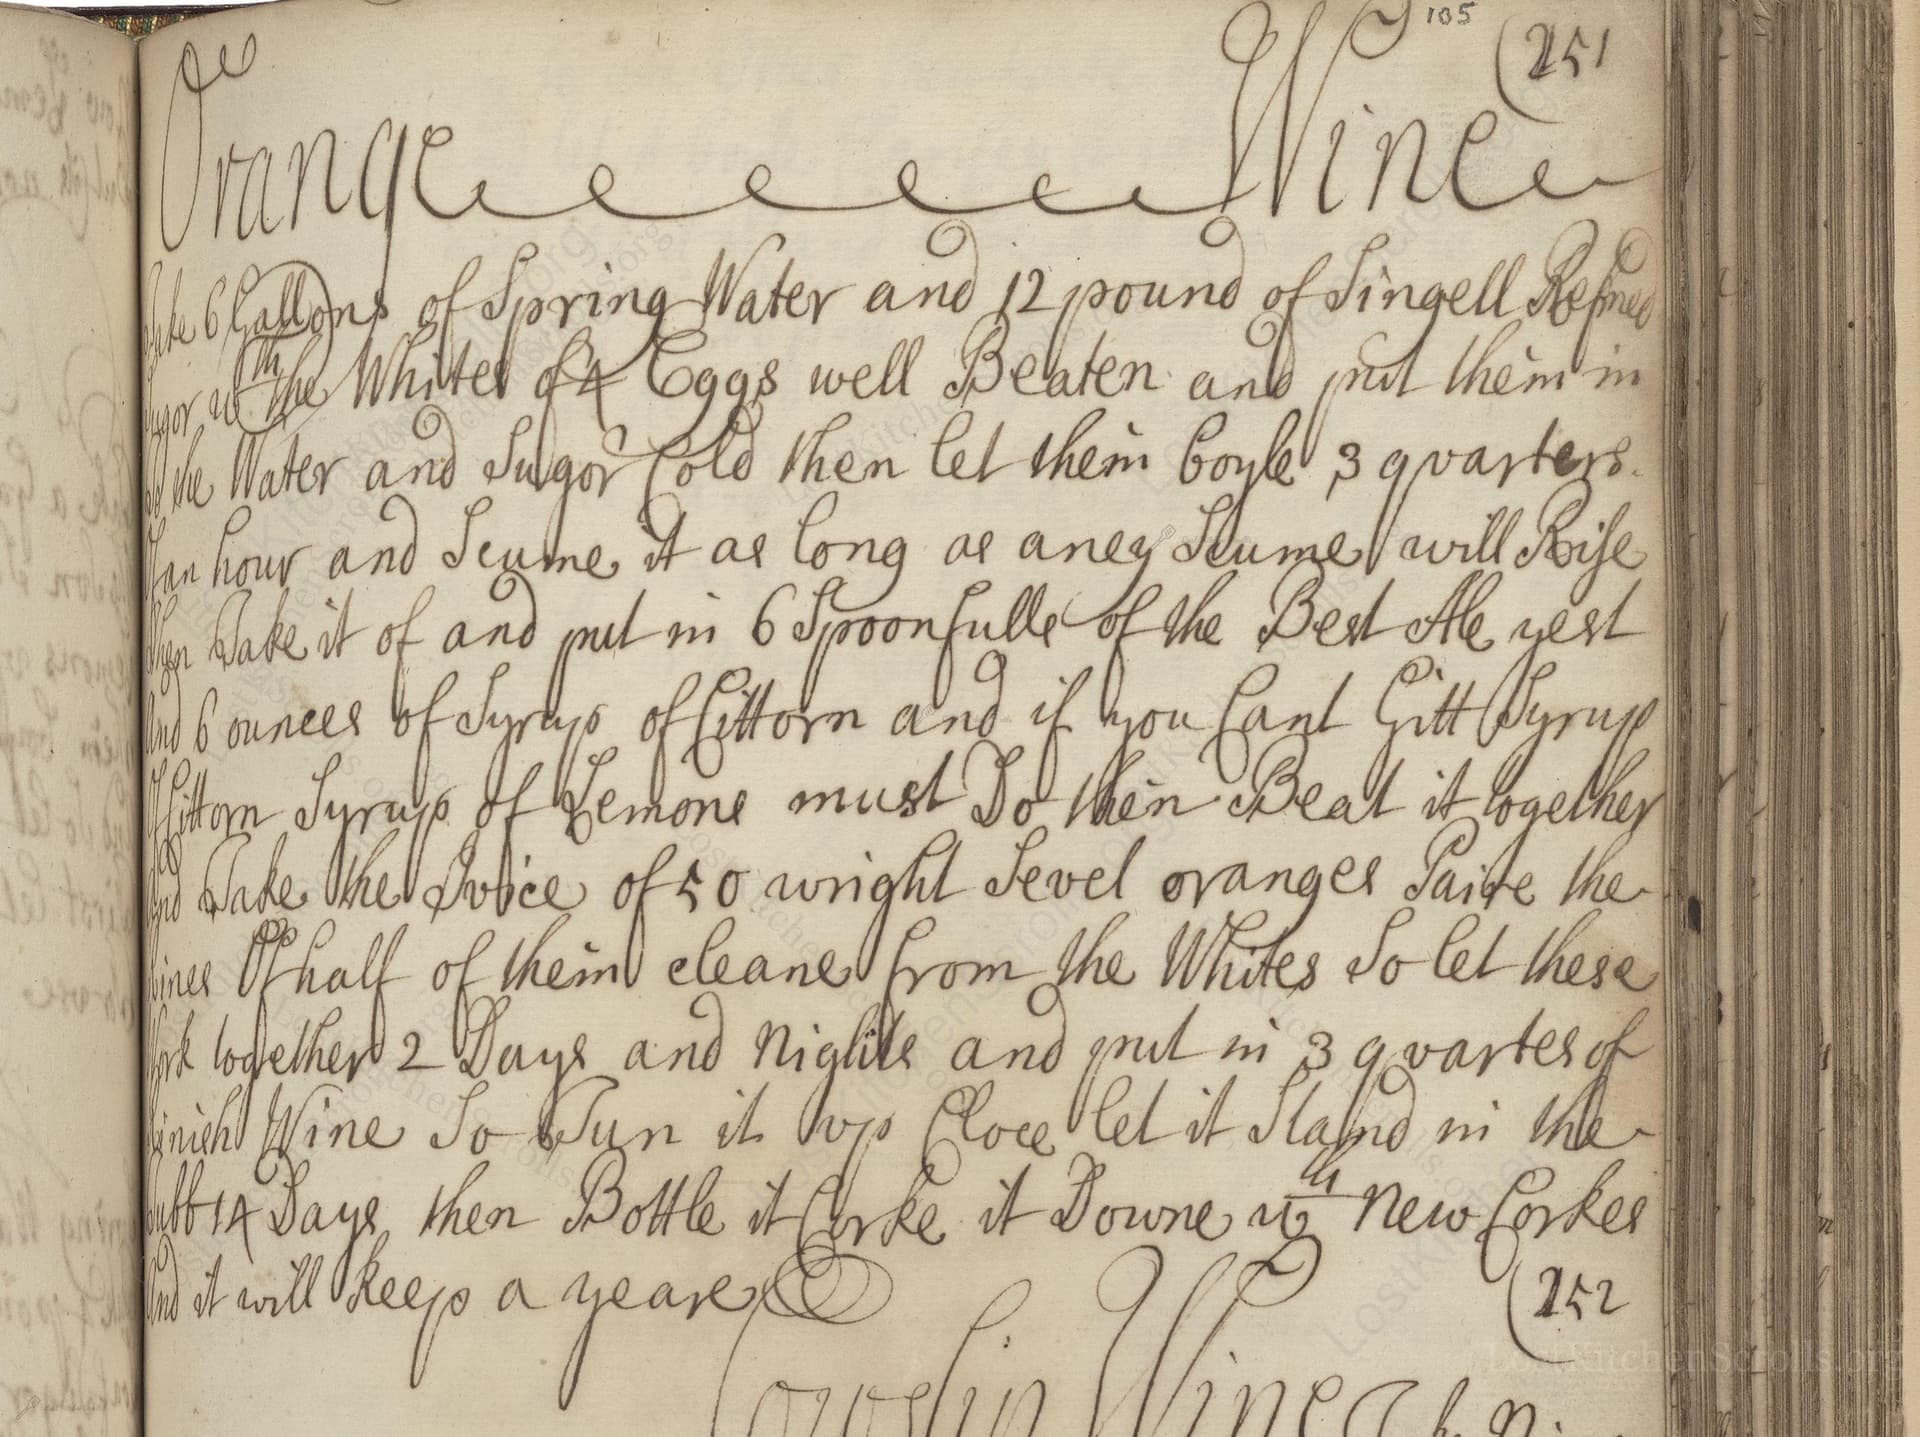 105
(251
Orange Wine
Take 6 Gallons of Spring Water and 12 pound of Singell Refined
Sugor wth the Whites of 4 Eggs well Beaten and put them in
to the Water and Sugor Cold then let them boyle 3 qvarters
of an hour and Scume it as long as aney Scume will Rise
then Take it of and put in 6 Spoonfulls of the Best Ale yest
And 6 ounces of Syrup of Cittorn and if you Cant Gitt Syrup
of Cittorn Syrup of Lemons must Do then Beat it together
And Take the Jvice of 50 wright Sevel oranges Paire the
Rines Off half of them cleane from the Whites So let these
Work together 2 Days and Nights and put in 3 qvartes of
Rinish Wine So Tun it vp Cloce let it Stand in the
Tubb 14 Days then Bottle it Corke it Downe wth New Corkes
And it will keep a yeare
(252
Cowslip Wine
LostKitchenScrolls.org